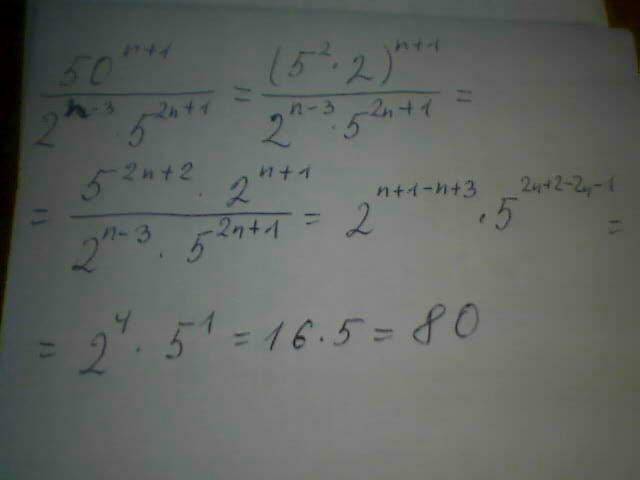 50^{n+1} / (2^{n-3} · 5^{2n+1}) = (5^2 · 2)^{n+1} / (2^{n-3} · 5^{2n+1}) =
= (5^{2n+2} · 2^{n+1}) / (2^{n-3} · 5^{2n+1}) = 2^{n+1-n+3} · 5^{2n+2-2n-1} =
= 2^4 · 5^1 = 16 · 5 = 80